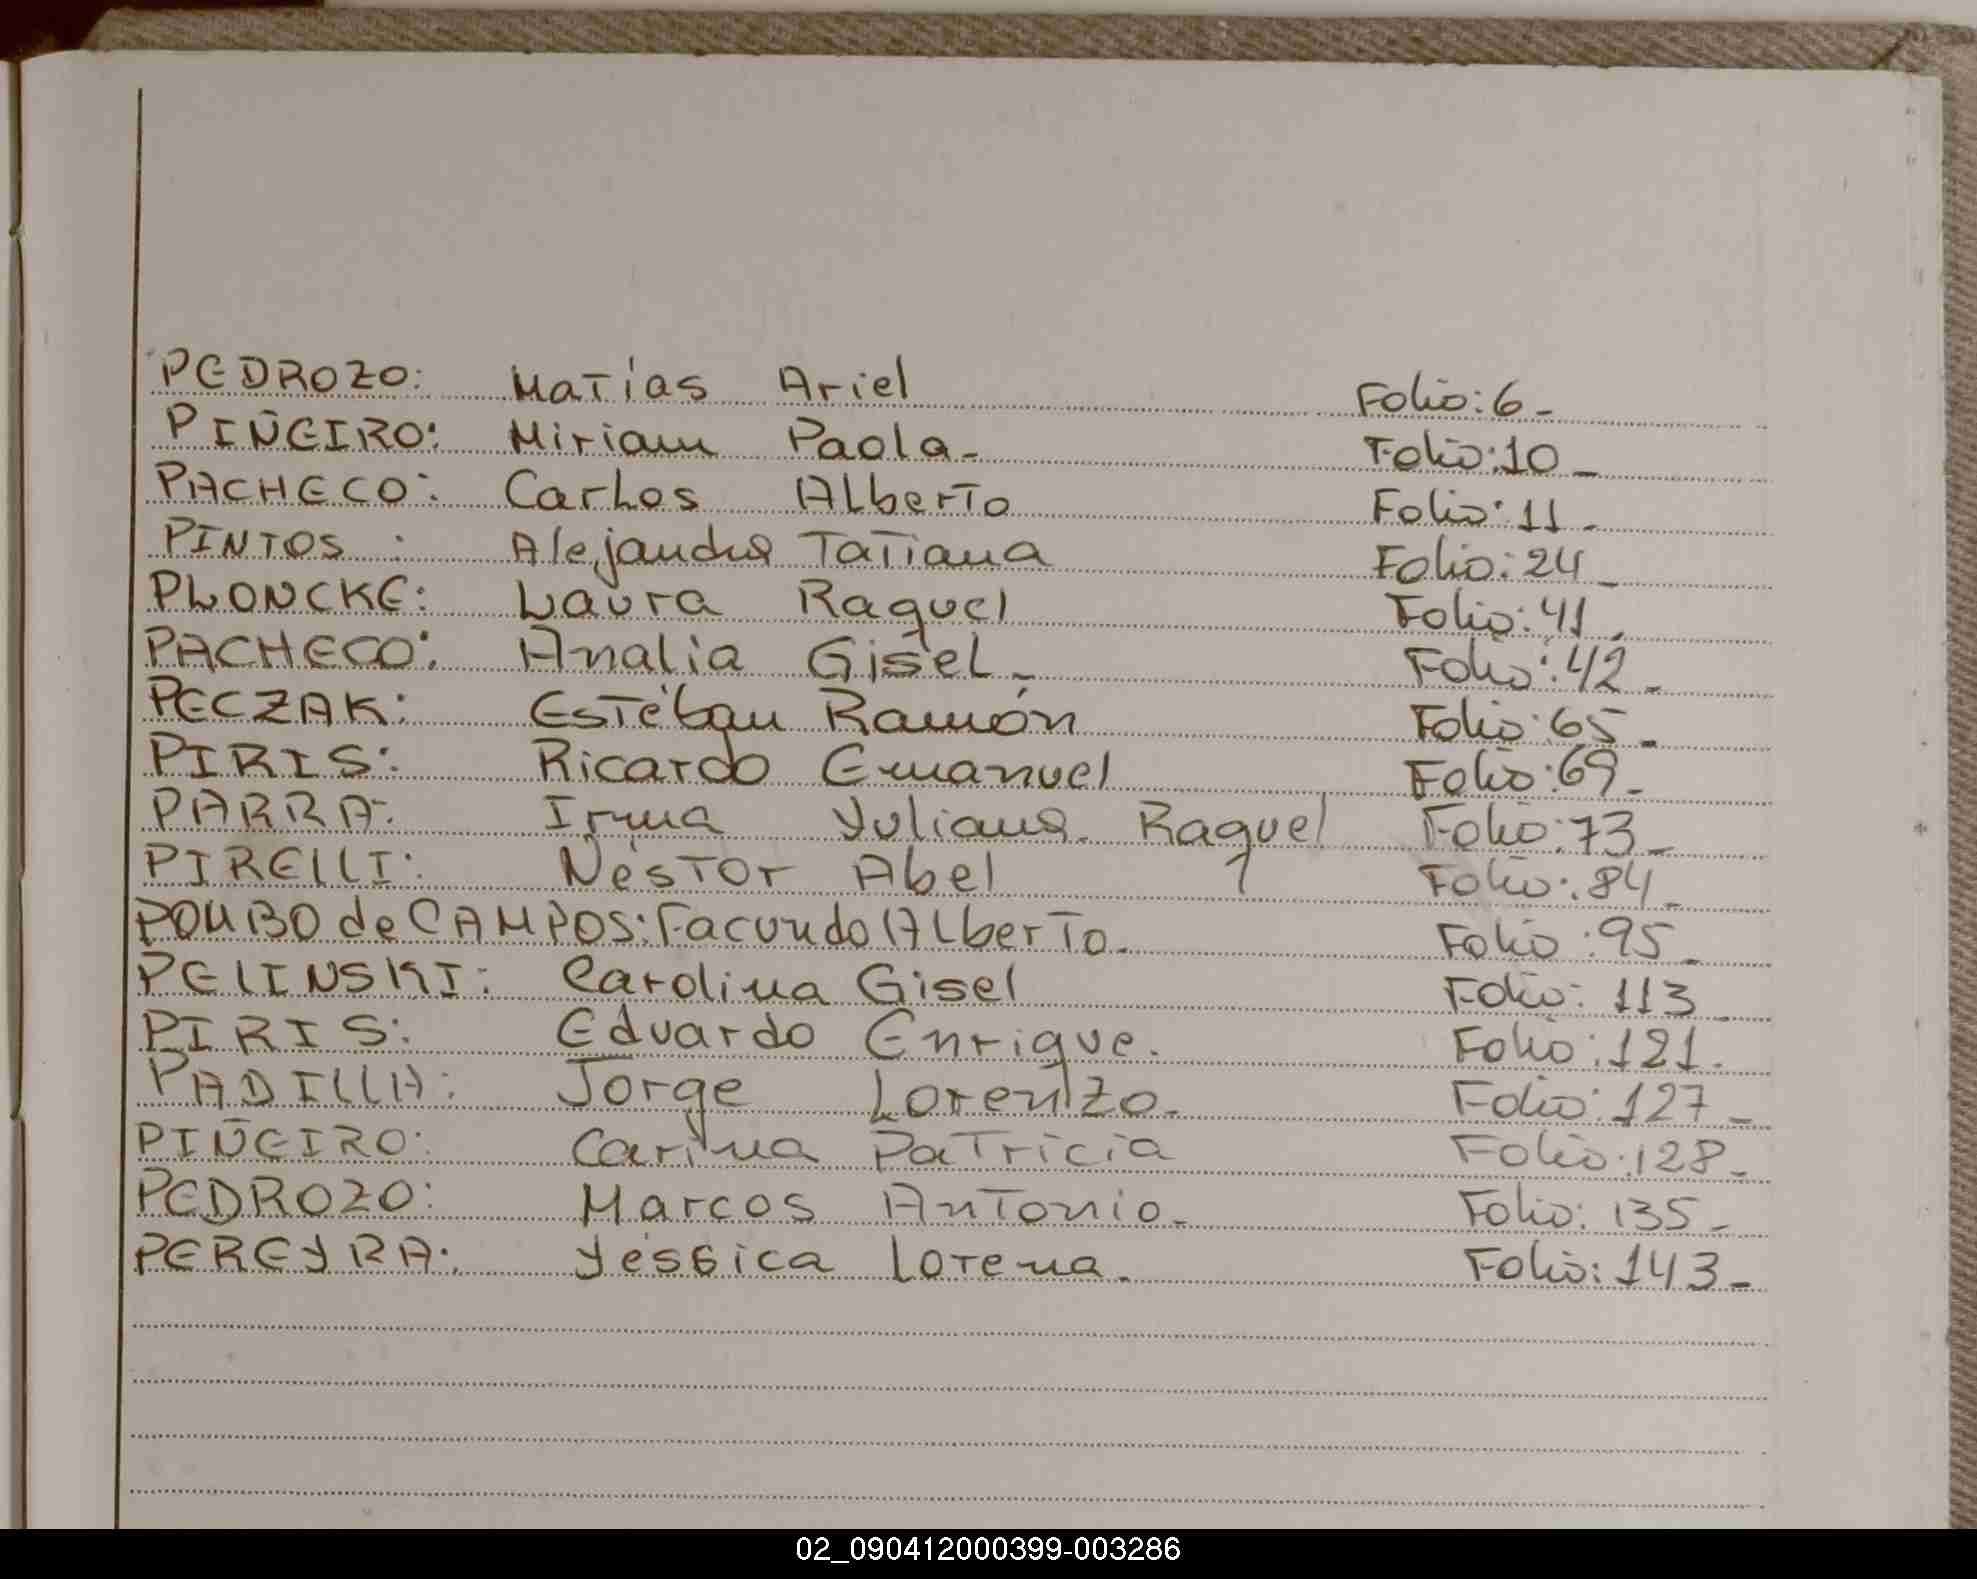 PEDROZO: Matías Ariel Folio: 6-
PIÑEIRO: Miriam Paola- Folio: 10-
PACHECO: Carlos Alberto Folio: 11-
PINTOS : Alejandra Tatiana Folio: 24-
PLONCKE: Laura Raquel Folio: 41.
PACHECO: Analia Gisel- Folio: 42-
PECZAK: Estéban Ramón Folio: 65-
PIRIS: Ricardo Emanuel Folio: 69-
PARRA: Irma Yuliana. Raquel Folio: 73-
PIRELLI: Néstor Abel Folio: 84-
POUBO de CAMPOS: Facundo Alberto. Folio: 95-
PELINSKI: Carolina Gisel Folio: 113-
PIRIS: Eduardo Enrique. Folio: 121.
PADILLA: Jorge Lorenzo. Folio: 127-
PIÑEIRO: Carina Patricia Folio: 128-
PEDROZO: Marcos Antonio- Folio: 135-
PEREYRA: Yéssica Lorena. Folio: 143-
02_090412000399-003286